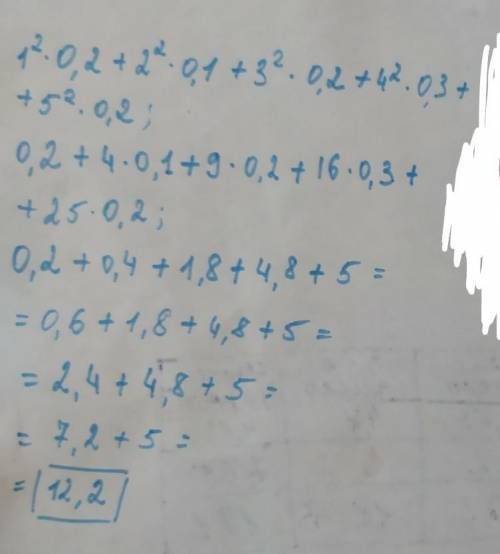 1² · 0,2 + 2² · 0,1 + 3² · 0,2 + 4² · 0,3 +
+ 5² · 0,2;
0,2 + 4 · 0,1 + 9 · 0,2 + 16 · 0,3 +
+ 25 · 0,2;
0,2 + 0,4 + 1,8 + 4,8 + 5 =
= 0,6 + 1,8 + 4,8 + 5 =
= 2,4 + 4,8 + 5 =
= 7,2 + 5 =
= 12,2